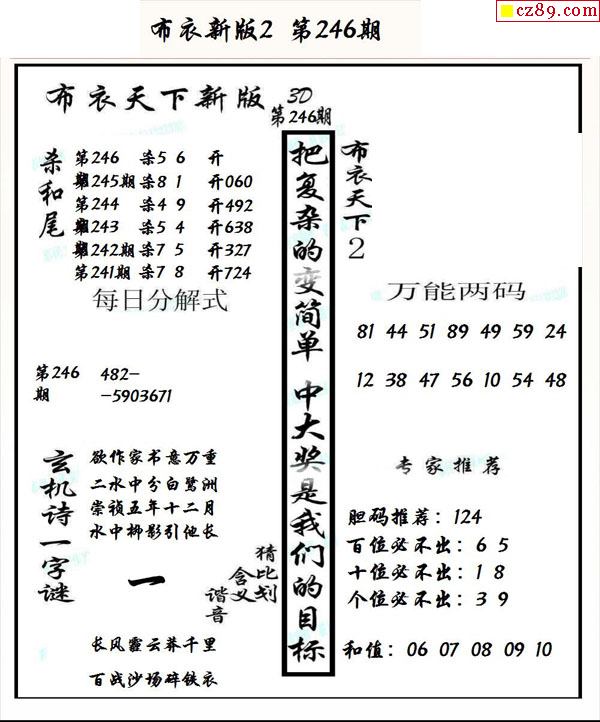 cz89.com
布衣新版2 第246期
布衣天下新版
3D
第246期
杀和尾
第246 杀5 6 开
第245期 杀8 1 开060
第244 杀4 9 开492
第243 杀5 4 开638
第242期 杀7 5 开327
第241期 杀7 8 开724
每日分解式
第246期
482-
-5903671
玄机诗一字谜
欲作家书意万重
二水中分白鹭洲
崇祯五年十二月
水中柳影引他长
一
猜比划
含义
谐音
长风霾云莽千里
百战沙场碎铁衣
把复杂的变简单 中大奖是我们的目标
布衣天下2
万能两码
81 44 51 89 49 59 24
12 38 47 56 10 54 48
专家推荐
胆码推荐：124
百位必不出：6 5
十位必不出：1 8
个位必不出：3 9
和值：06 07 08 09 10